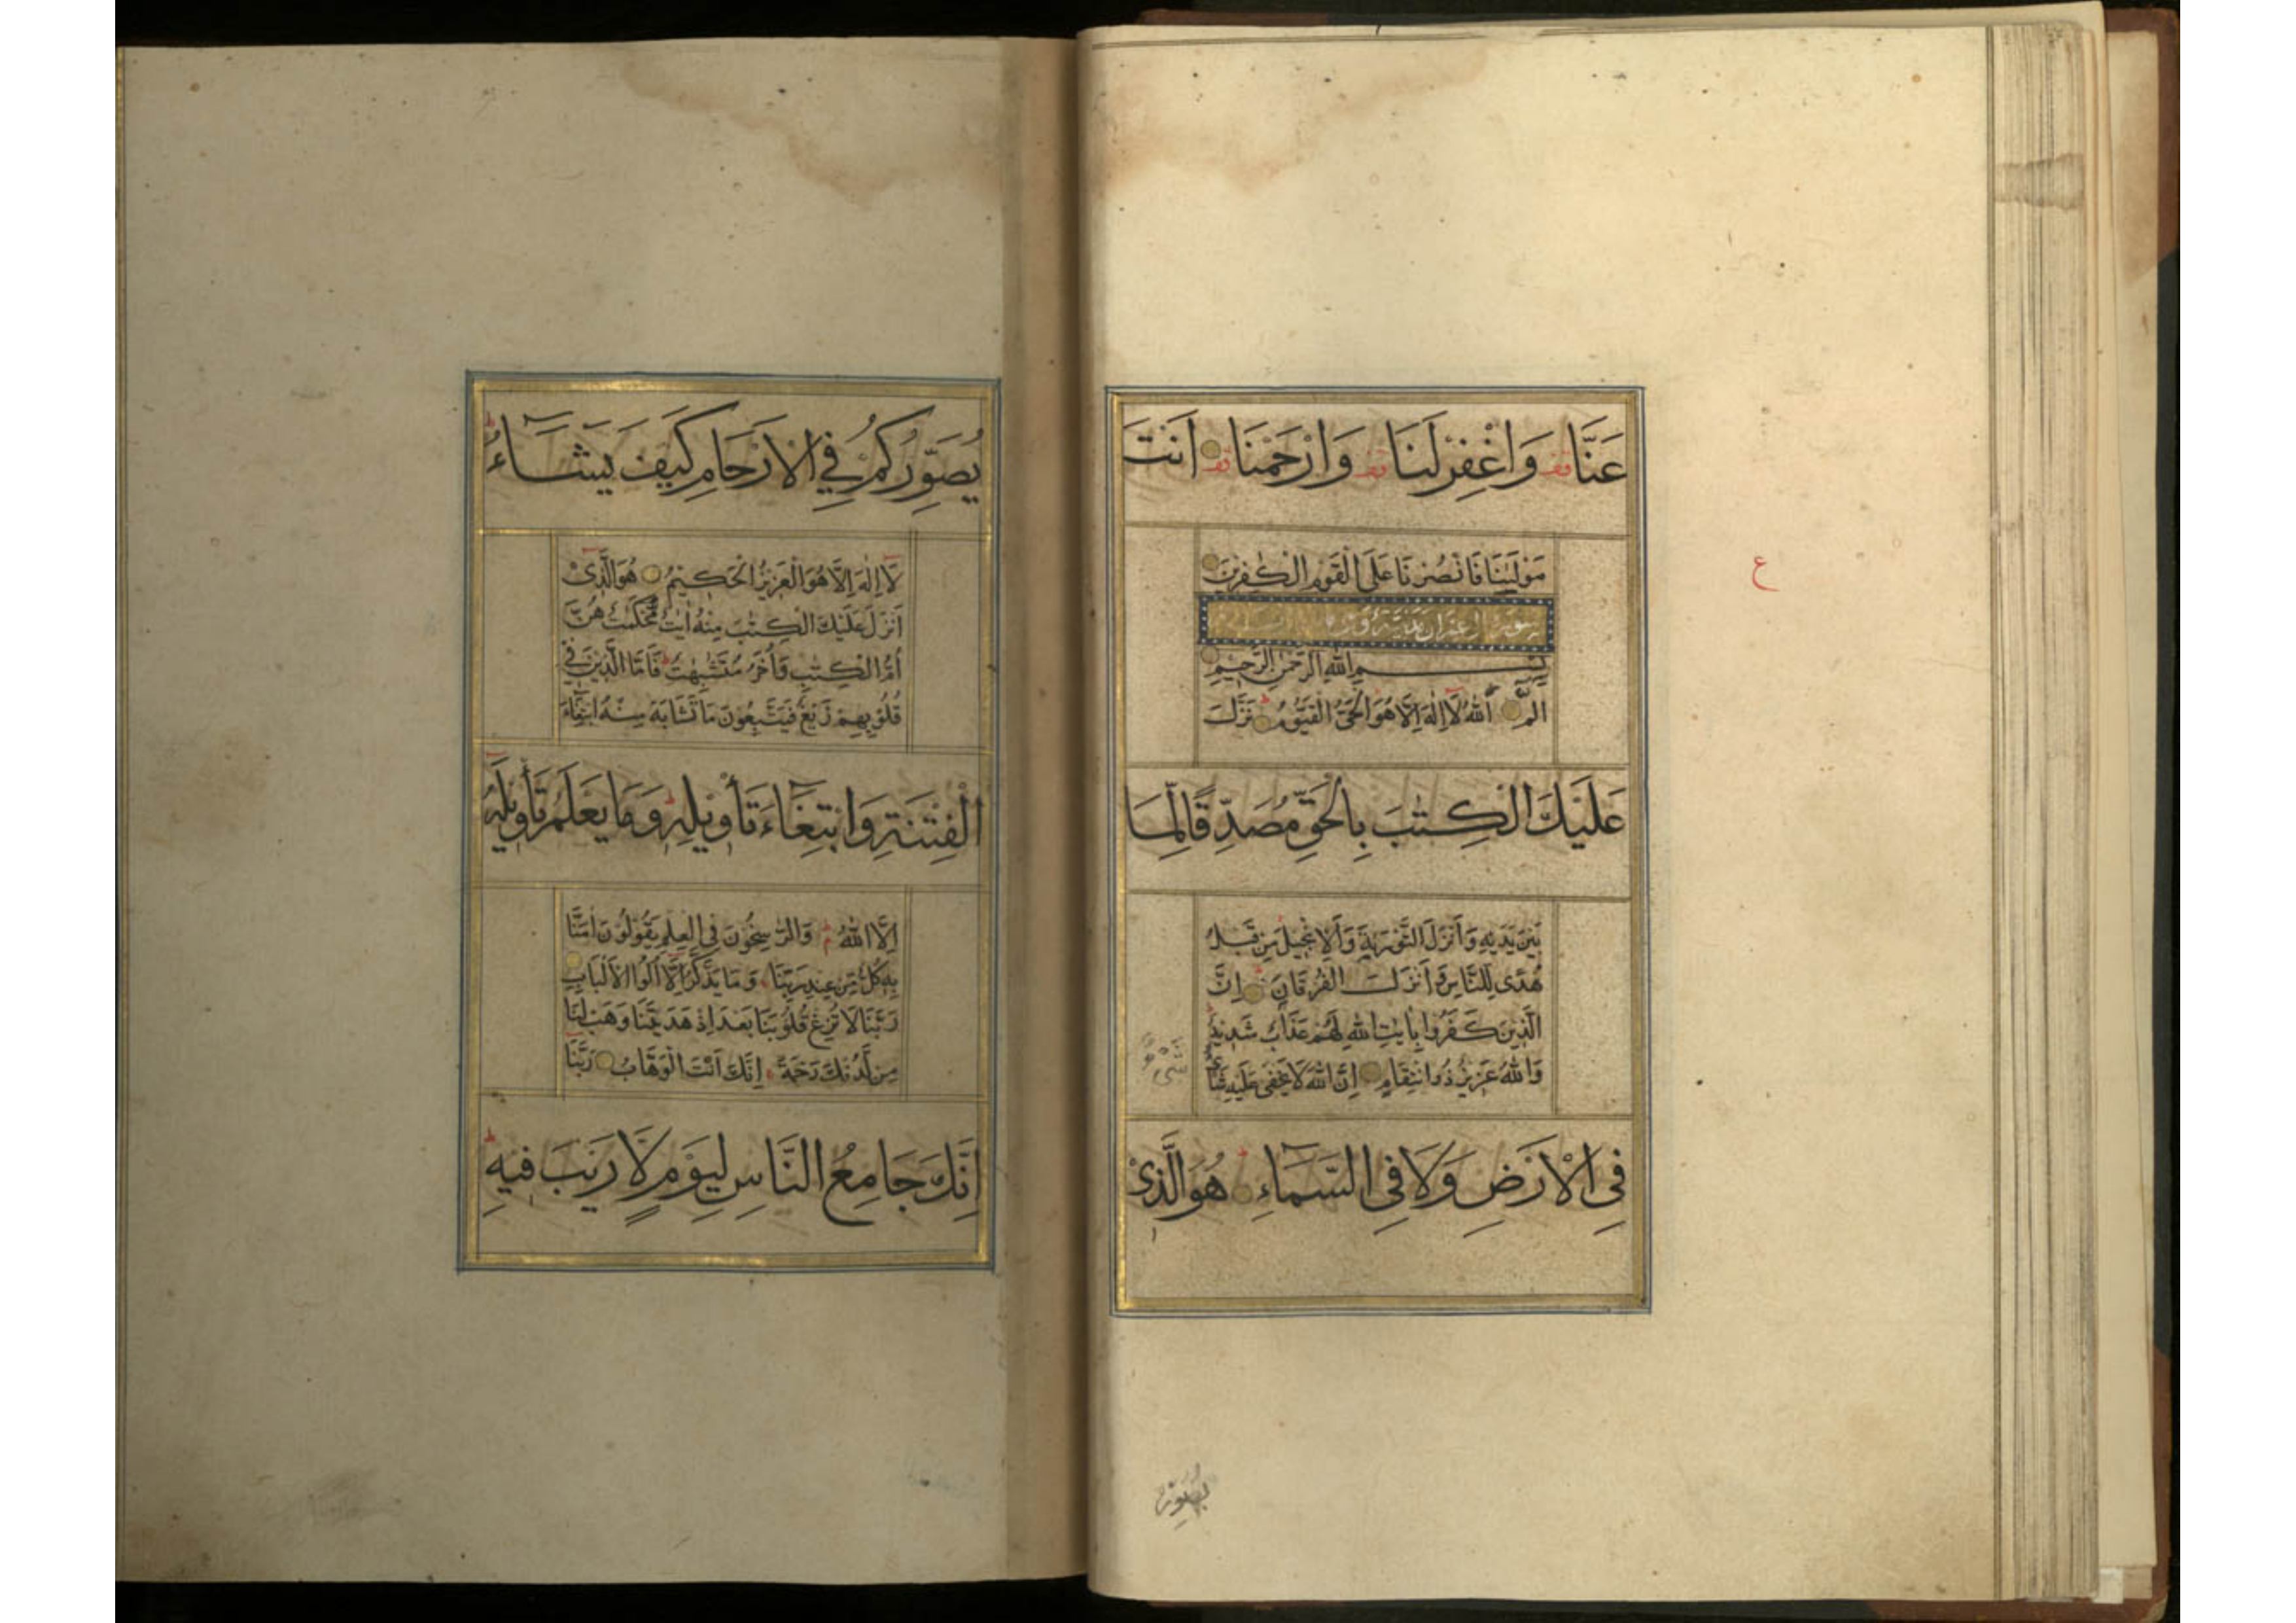 عَنَّا قف وَاغْفِرْ لَنَا قف وَارْحَمْنَا قف اَنْتَ
مَوْلٰىنَا فَانْصُرْنَا عَلَى الْقَوْمِ الْكٰفِرِيْنَ
سورة ال عمران مدنية
بِسْمِ اللهِ الرَّحْمٰنِ الرَّحِيْمِ
الٓمّٓ اَللهُ لَآ اِلٰهَ اِلَّا هُوَ الْحَىُّ الْقَيُّوْمُ ط نَزَّلَ
عَلَيْكَ الْكِتٰبَ بِالْحَقِّ مُصَدِّقًا لِّمَا
بَيْنَ يَدَيْهِ وَاَنْزَلَ التَّوْرٰىةَ وَالْاِنْجِيْلَ مِنْ قَبْلُ
هُدًى لِّلنَّاسِ وَاَنْزَلَ الْفُرْقَانَ ط اِنَّ
الَّذِيْنَ كَفَرُوْا بِاٰيٰتِ اللهِ لَهُمْ عَذَابٌ شَدِيْدٌ ط
وَاللهُ عَزِيْزٌ ذُوانْتِقَامٍ اِنَّ اللهَ لَا يَخْفٰى عَلَيْهِ شَىْءٌ
شَىْءٌ
فِى الْاَرْضِ وَلَا فِى السَّمَآءِ ط هُوَ الَّذِىْ
يُصَوِّرُ
ع
يُصَوِّرُكُمْ فِي الْاَرْحَامِ كَيْفَ يَشَآءُ ط
لَآ اِلٰهَ اِلَّا هُوَ الْعَزِيْزُ الْحَكِيْمُ هُوَ الَّذِىْٓ
اَنْزَلَ عَلَيْكَ الْكِتٰبَ مِنْهُ اٰيٰتٌ مُّحْكَمٰتٌ هُنَّ
اُمُّ الْكِتٰبِ وَاُخَرُ مُتَشٰبِهٰتٌ ط فَاَمَّا الَّذِيْنَ فِي
قُلُوْبِهِمْ زَيْغٌ فَيَتَّبِعُوْنَ مَا تَشَابَهَ مِنْهُ ابْتِغَآءَ
الْفِتْنَةِ وَابْتِغَآءَ تَأْوِيْلِهٖ ط وَمَا يَعْلَمُ تَأْوِيْلَهٗٓ
اِلَّا اللهُ م وَالرّٰسِخُوْنَ فِى الْعِلْمِ يَقُوْلُوْنَ اٰمَنَّا
بِهٖ كُلٌّ مِّنْ عِنْدِ رَبِّنَا وَمَا يَذَّكَّرُ اِلَّا اُلُوا الْاَلْبَابِ
رَبَّنَا لَا تُزِغْ قُلُوْبَنَا بَعْدَ اِذْ هَدَيْتَنَا وَهَبْ لَنَا
مِنْ لَّدُنْكَ رَحْمَةً اِنَّكَ اَنْتَ الْوَهَّابُ رَبَّنَآ
اِنَّكَ جَامِعُ النَّاسِ لِيَوْمٍ لَّا رَيْبَ فِيْهِ ط